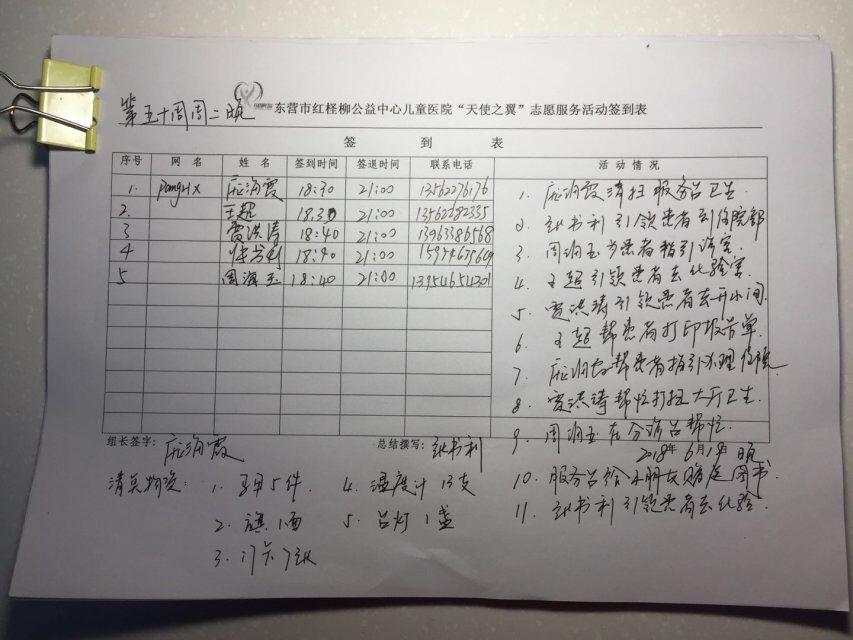 第五十周周二晚
东营市红柽柳公益中心儿童医院“天使之翼”志愿服务活动签到表
签 到 表
序号 网 名 姓 名 签到时间 签退时间 联系电话 活 动 情 况
1. 18:30 21:00 13562276176
2. 王超 18:30 21:00 13562282335
3 贾洪涛 18:40 21:00 13963386568
4 张书利 18:40 21:00
5 周润玉 18:40 21:00
1. 润霞清扫服务台卫生.
2. 张书利引领患者到住院部
3. 周润玉为患者指引诊室.
4. 王超引领患者去化验室.
5. 贾洪涛引领患者去开水间.
6. 王超帮患者打印报告单.
7. 帮患者指引办理住院
8. 贾洪涛帮忙打扫大厅卫生.
9. 周润玉在分诊台帮忙.
组长签字: 润霞 总结撰写: 张书利
2018年6月19日 晚
10. 服务台给小朋友 图书.
11. 张书利引领患者去化验.
清点物资: 1. 马甲5件. 4. 温度计13支
2. 旗1面 5. 台灯1盏
3. 门卡7张